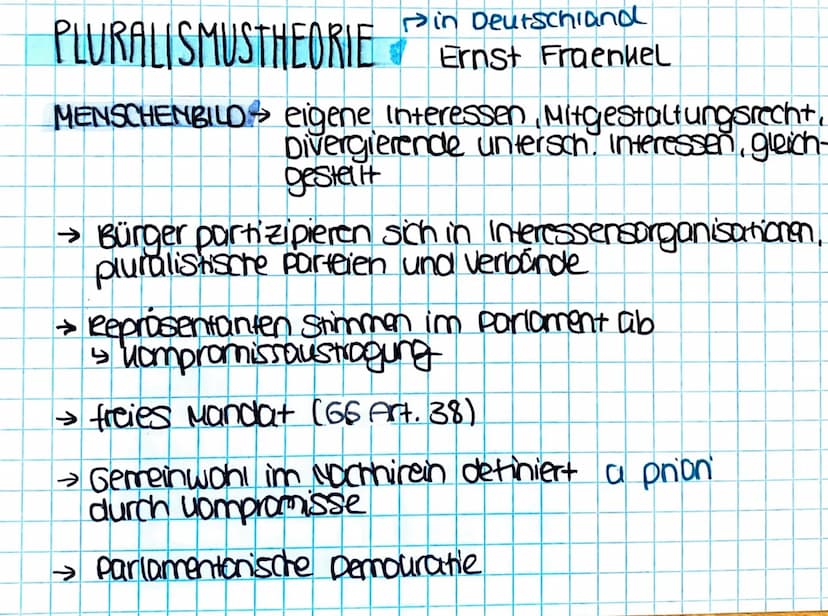 PLURALISMUSTHEORIE
→ in Deutschland
Ernst Fraenkel
MENSCHENBILD → eigene Interessen, Mitgestaltungsrecht,
Divergierende untersch. Interessen, gleich-
gestellt
→ Bürger partizipieren sich in Interessensorganisationen,
pluralistische Parteien und Verbände
→ Repräsentanten stimmen im Parlament ab
↳ Kompromissaustragung
→ freies Mandat (GG Art. 38)
→ Gemeinwohl im Nachhinein definiert a priori
durch Kompromisse
→ Parlamentarische Demokratie